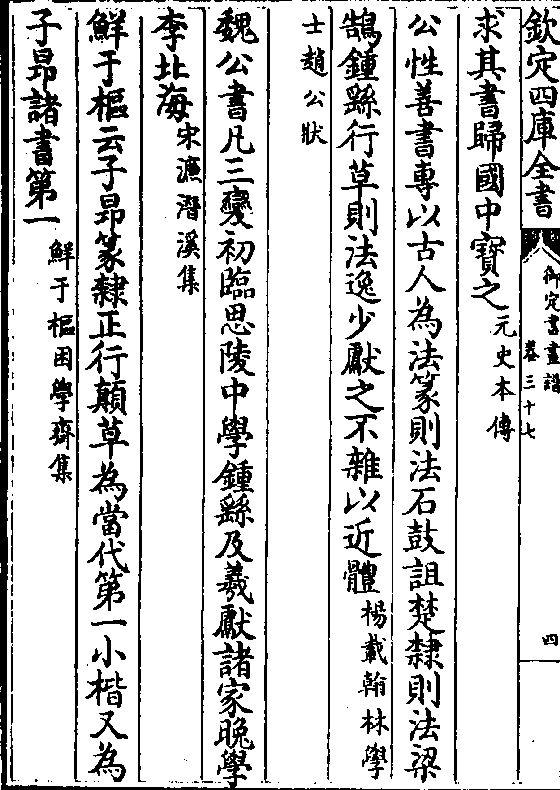 欽定四庫全書
御定書畫譜
卷三十七
四
求其書歸國中寳之元史本傳
公性善書專以古人為法篆則法石鼓詛楚隸則法梁
鵠鍾繇行草則法逸少獻之不雜以近體楊載翰林學
士趙公狀
魏公書凡三變初臨思陵中學鍾繇及羲獻諸家晚學
李北海宋濂潛溪集
鮮于樞云子昂篆隸正行顛草為當代第一小楷又為
子昻諸書第一鮮于樞困學齋集